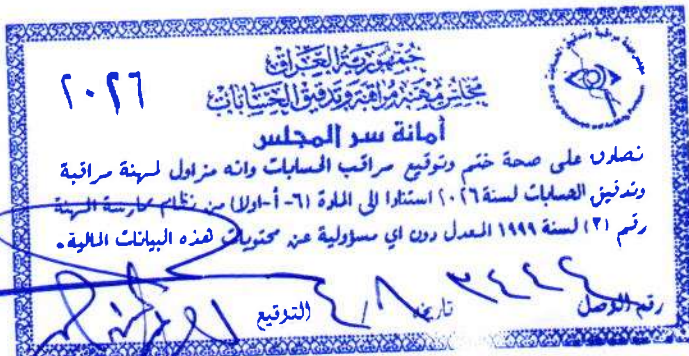 جمهورية العراق
مجلس مهنة مراقبة وتدقيق الحسابات
٢٠٢٦
أمانة سر المجلس
نصادق على صحة ختم وتوقيع مراقب الحسابات وانه مزاول لمهنة مراقبة
وتدقيق الحسابات لسنة ٢٠٢٦ استنادا الى المادة (٦-أ-اولا) من نظام ممارسة المهنة
رقم (٣) لسنة ١٩٩٩ المعدل دون اي مسؤولية عن محتويات هذه البيانات المالية.
رقم الوصل ٣٤٤٤ تاريخه ٤/٨ التوقيع